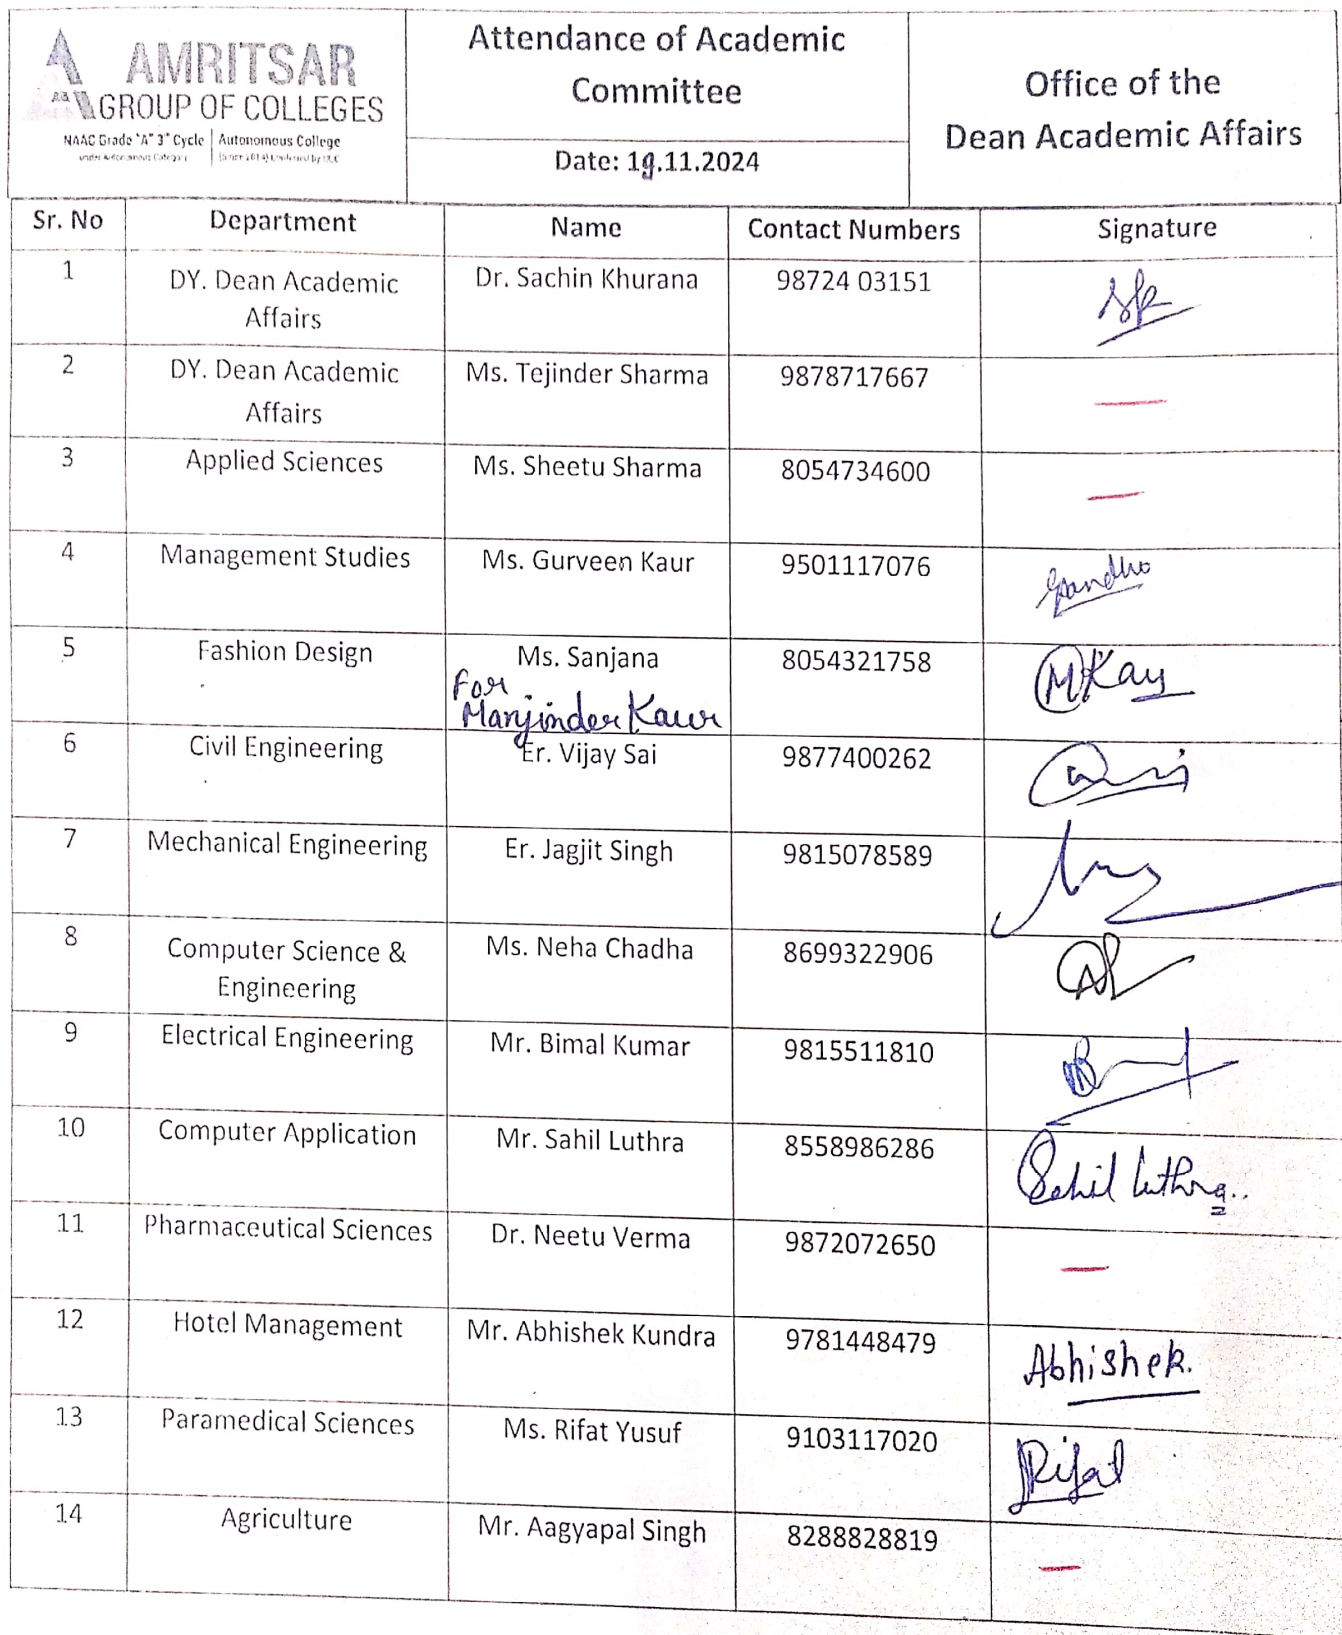 AMRITSAR
GROUP OF COLLEGES
NAAC Grade "A" 3rd Cycle | Autonomous College
under Autonomous Category
Attendance of Academic
Committee
Date: 19.11.2024
Office of the
Dean Academic Affairs
Sr. No Department Name Contact Numbers Signature
1 DY. Dean Academic Affairs Dr. Sachin Khurana 98724 03151
2 DY. Dean Academic Affairs Ms. Tejinder Sharma 9878717667 —
3 Applied Sciences Ms. Sheetu Sharma 8054734600 —
4 Management Studies Ms. Gurveen Kaur 9501117076
5 Fashion Design Ms. Sanjana 8054321758 MKaur
For
Manjinder Kaur
6 Civil Engineering Er. Vijay Sai 9877400262
7 Mechanical Engineering Er. Jagjit Singh 9815078589
8 Computer Science & Engineering Ms. Neha Chadha 8699322906
9 Electrical Engineering Mr. Bimal Kumar 9815511810
10 Computer Application Mr. Sahil Luthra 8558986286 Sahil Luthra..
11 Pharmaceutical Sciences Dr. Neetu Verma 9872072650 —
12 Hotel Management Mr. Abhishek Kundra 9781448479 Abhishek.
13 Paramedical Sciences Ms. Rifat Yusuf 9103117020 Rifat
14 Agriculture Mr. Aagyapal Singh 8288828819 —